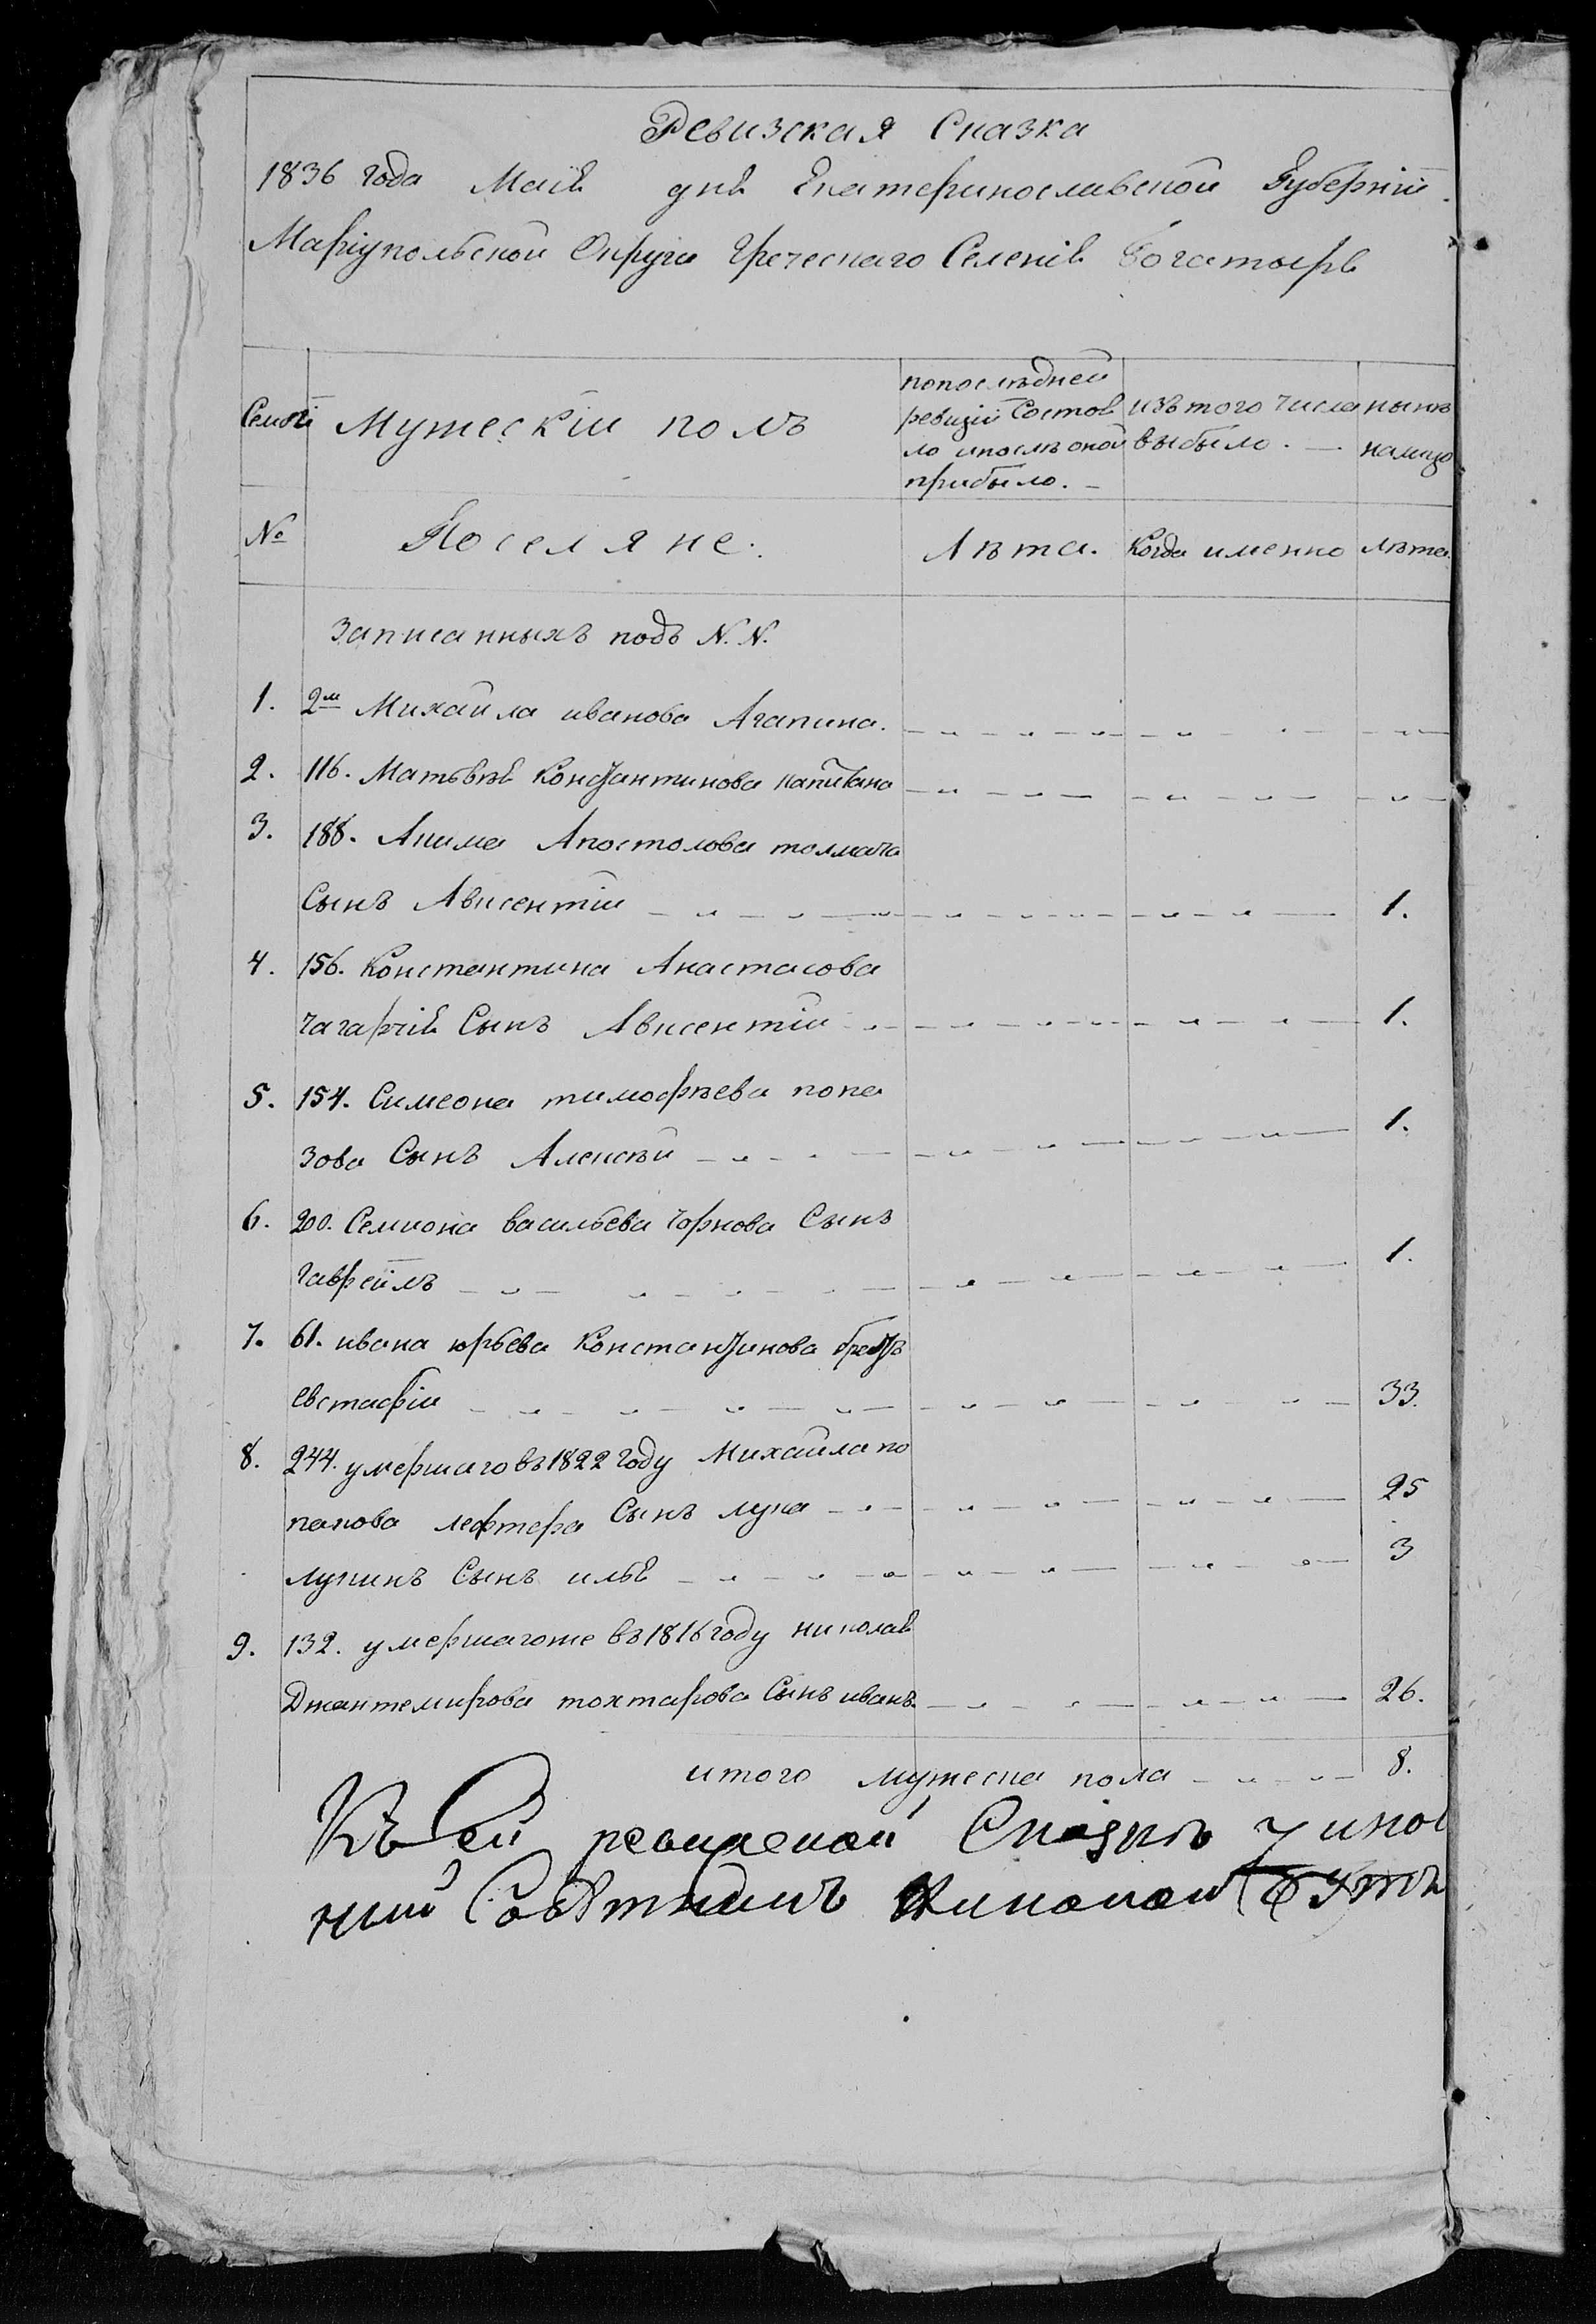 Ревизская Сказка
1836 года Маія дня Екатеринославской Губерніи
Маріупольской Округи Греческаго Селенія Богатырь
Семей
Мужескій полъ
попослѣдней ревизіи Состояло ипослѣ оной прибыло.
изъ того числа выбыло.
нынѣ налицо
№
Поселяне.
Лѣта.
Когда именно
лѣта.
Записанныхъ подъ N.N.
1. 2м Михаила иванова Агапина.
2. 116. Матвѣя Константинова капитана
3. 188. Акима Апостолова толмача
Сынъ Авксентій 1.
4. 156. Константина Анастасова
чагарчія Сынъ Авксентій 1.
5. 154. Симеона тимофѣева попа
зова Сынъ Алексѣй 1.
6. 200. Семиона васильева чорнова Сынъ
гавреілъ 1.
7. 61. ивана юрьева Константинова братъ
евстафій 33.
8. 244. умершаго въ 1822 году Михаила по
панова лефтера Сынъ лука 25
лукинъ Сынъ илья 3
9. 132. умершагоже въ 1816 году николая
Джантемирова тохтарова Сынъ иванъ 26.
итого мужеска пола 8.
Къ Сей ревизской Сказкѣ